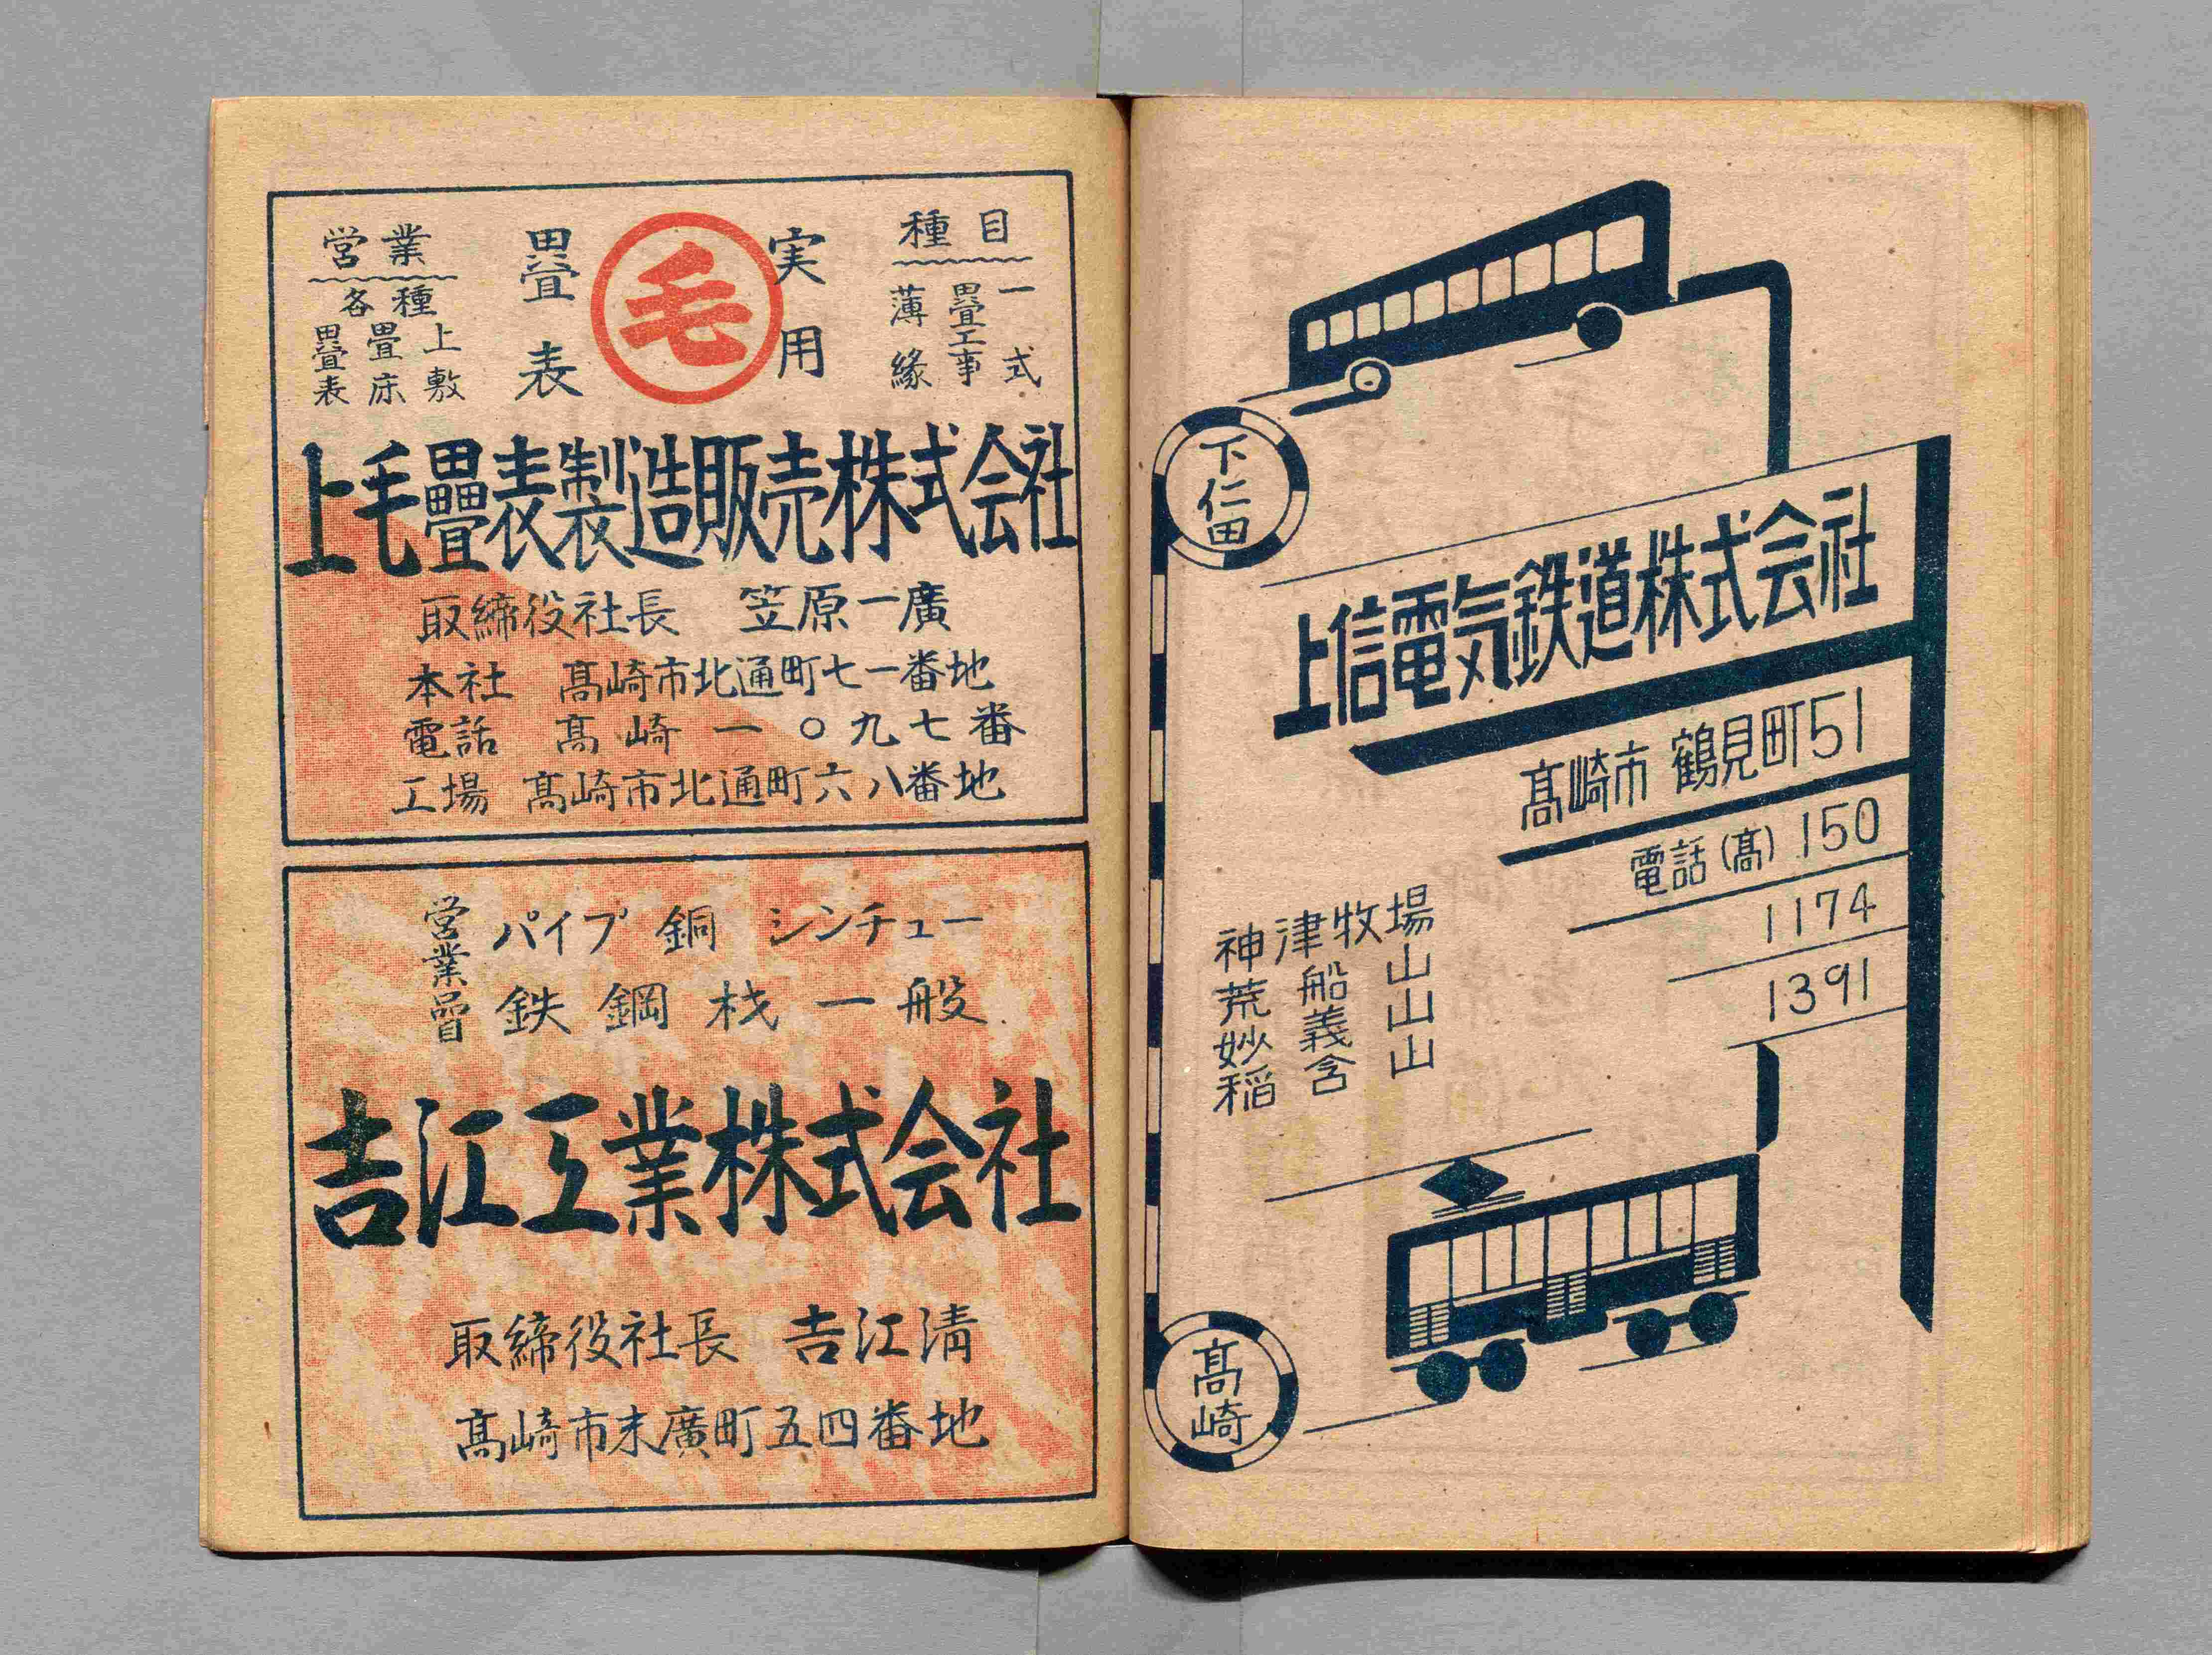 営業 種目
各種
畳表 畳床 上敷
畳表 毛 実用
薄縁 畳工事 一式
上毛疊表製造販売株式会社
取締役社長 笠原一廣
本社 髙崎市北通町七一番地
電話 髙崎一〇九七番
工場 髙崎市北通町六八番地
営業品目
パイプ 銅 シンチュー
鉄鋼材一般
吉江工業株式会社
取締役社長 吉江清
髙崎市末廣町五四番地
下仁田
上信電気鉄道株式会社
髙崎市 鶴見町51
電話(髙)150
1174
1391
神津牧場
荒船山
妙義山
稲含山
髙崎